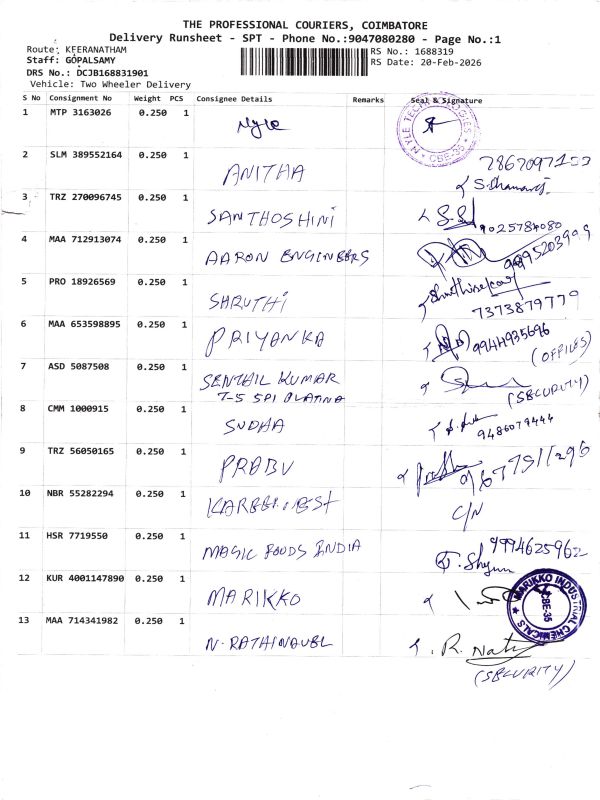 THE PROFESSIONAL COURIERS, COIMBATORE
Delivery Runsheet - SPT - Phone No.:9047080280 - Page No.:1
Route: KEERANATHAM
RS No.: 1688319
Staff: GOPALSAMY
RS Date: 20-Feb-2026
DRS No.: DCJB168831901
Vehicle: Two Wheeler Delivery
S No Consignment No Weight PCS Consignee Details Remarks Seal & Signature
1 MTP 3163026 0.250 1 Nyle
CBE-35
2 SLM 389552164 0.250 1 ANITHA
3 TRZ 270096745 0.250 1 SANTHOSHINI
9025784080
4 MAA 712913074 0.250 1 AARON ENGINEERS
5 PRO 18926569 0.250 1 SHRUTHI
7373879779
6 MAA 653598895 0.250 1 PRIYANKA 9944935696
(OFFICE)
7 ASD 5087508 0.250 1 SENTHIL KUMAR
T-5 SPI PLATINA
(SECURITY)
8 CMM 1000915 0.250 1 SUDHA
9486079444
9 TRZ 56050165 0.250 1 PRABU
10 NBR 55282294 0.250 1
C/N
11 HSR 7719550 0.250 1 MAGIC FOODS INDIA 9994625962
12 KUR 4001147890 0.250 1 MARIKKO
MARIKKO INDUSTRIAL CHEMICALS
CBE-35
13 MAA 714341982 0.250 1 N. RATHINAVEL
(SECURITY)